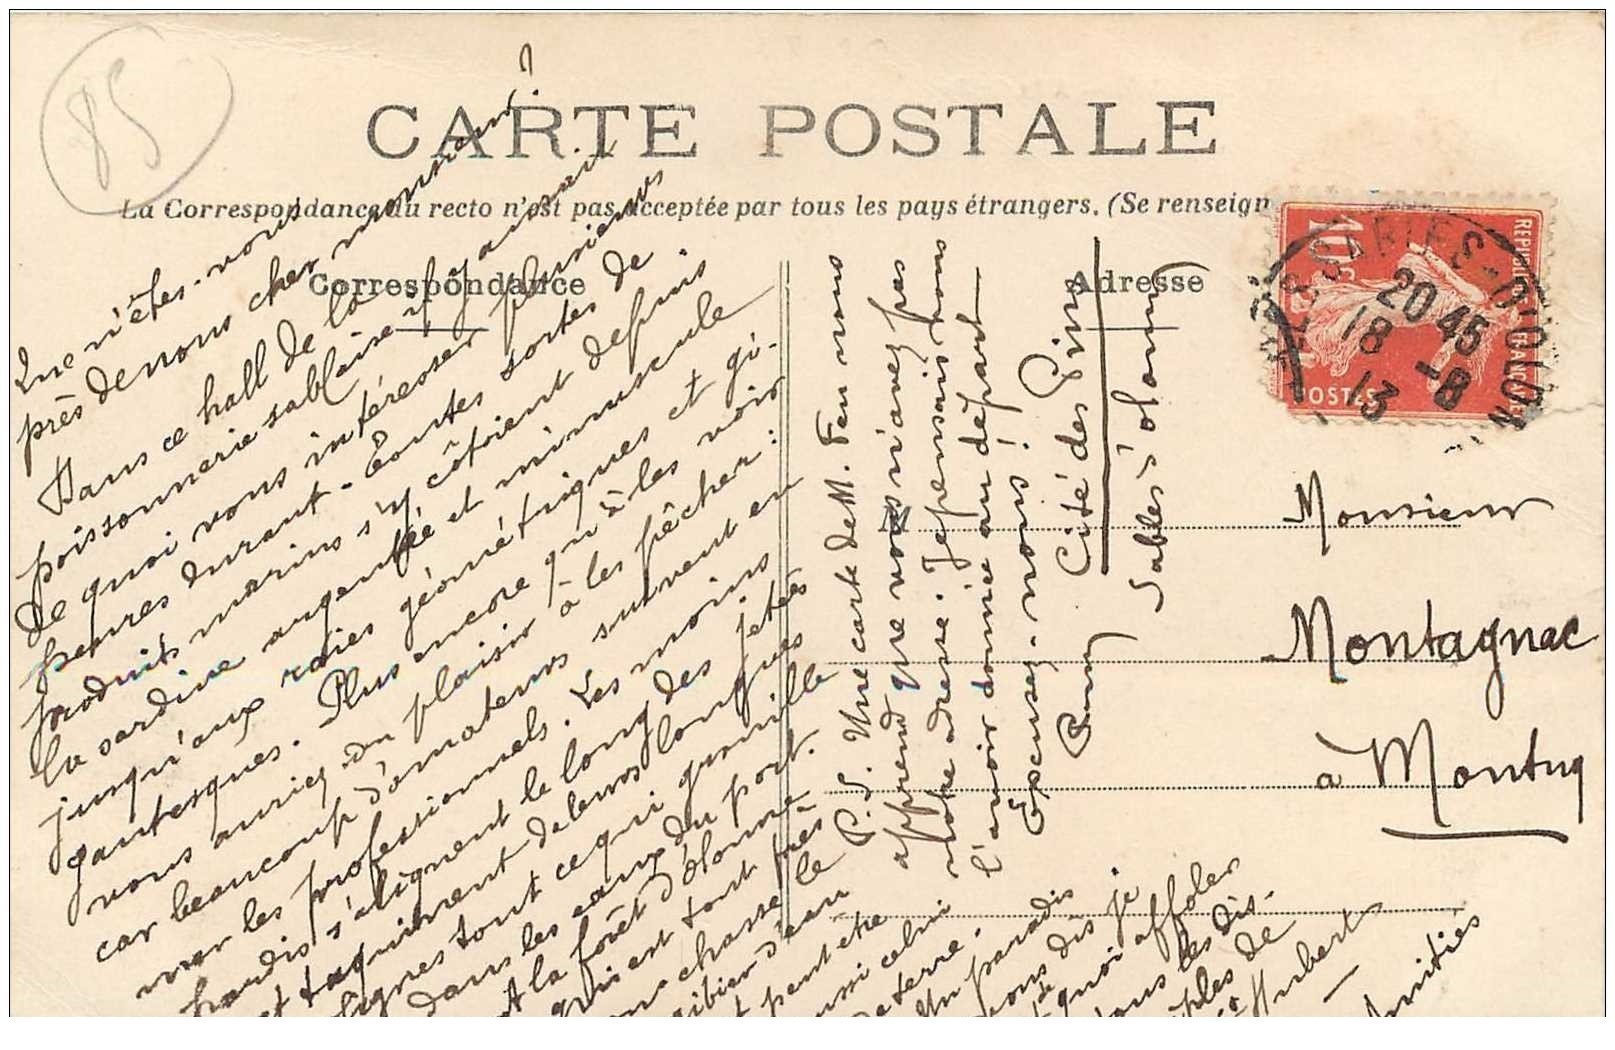 85
CARTE POSTALE
La Correspondance au recto n'est pas acceptée par tous les pays étrangers. (Se renseign
Correspondance
Adresse
REPUBLIQUE FRANÇAISE
10c
POSTES
SABLES-D'OLONNE
20 45
18 -8
13
Que n'êtes-vous
près de nous cher monsieur ?
Dans ce hall de la
poissonnerie sablaise il y aurait
de quoi vous intéresser plusieurs
heures durant. Toutes sortes de
produits marins s'y côtoient depuis
la sardine argentée et minuscule
jusqu'aux raies géométriques et gi-
gantesques. Plus encore qu'à les voir
vous auriez du plaisir à les pêcher :
car beaucoup d'amateurs suivent en
mer les professionnels. Les moins
hardis s'alignent le long des jetées
et taquinent de leurs longues
lignes tout ce qui grouille
dans les eaux du port.
A la forêt d'Olonne
qui est tout près
on chasse le
gibier d'eau
et peut être
aussi celui
de terre.
Un paradis
vous dis-je
de quoi affoler
tous les dis-
ciples de
St Hubert
Amitiés
P.S. Une carte de M. Feu nous
apprend que vous n'avez pas
notre adresse. Je pensais vous
l'avoir donnée au départ
Excusez-nous !
Cité des Pins
Sables d'Olonne
Monsieur
Montagnac
à Montcuq